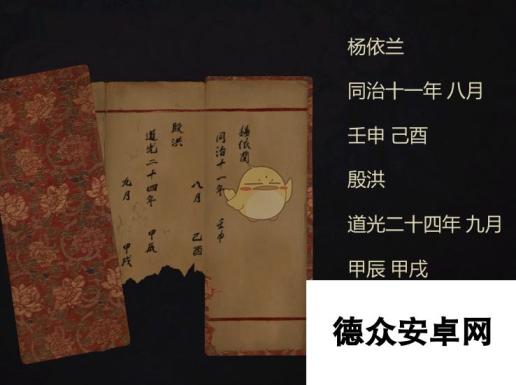 杨依兰
同治十一年 八月
壬申 己酉
殷洪
道光二十四年 九月
甲辰 甲戌
杨依蘭
同治十一年 壬申
八月 己酉
殷洪
道光二十四年 甲辰
九月 甲戌
德众安卓网